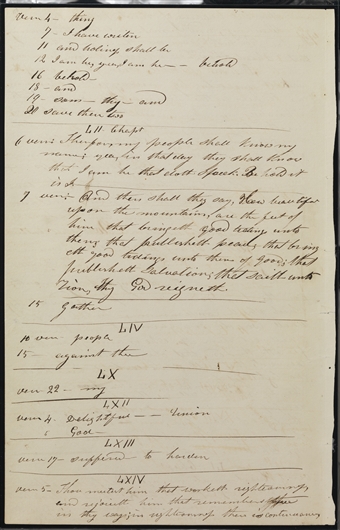 vers 4 - thing
9 - I have written
11 and holiness shall be
12 I am he, yea, I am he - - behold
16 behold
18 - and
19 - sons - thy - and
20 save there two
LII Chapt
6 vers: Therefore my people shall know my
name; yea, in that day they shall know
that I am he that doth speak; Behold it
is I -
7 vers: And then shall they say, How beautiful
upon the mountains, are the feet of
him that bringeth good tidings unto
them; that publisheth peace; that bring-
eth good tidings unto them of good; that
publisheth salvation; that saith unto
Zion, thy God reigneth.
15 Gather
LIV
10 vers people
15 - against thee
LX
vers 22 - my
LXII
vers 4. Delightful - - Union
5 God -
LXIII
vers 17 - suffered to harden
LXIV
vers 5 - Thou meetest him that worketh righteousness
and rejoiceth him that remembereth thee
in thy ways; in righteousness there is continuance